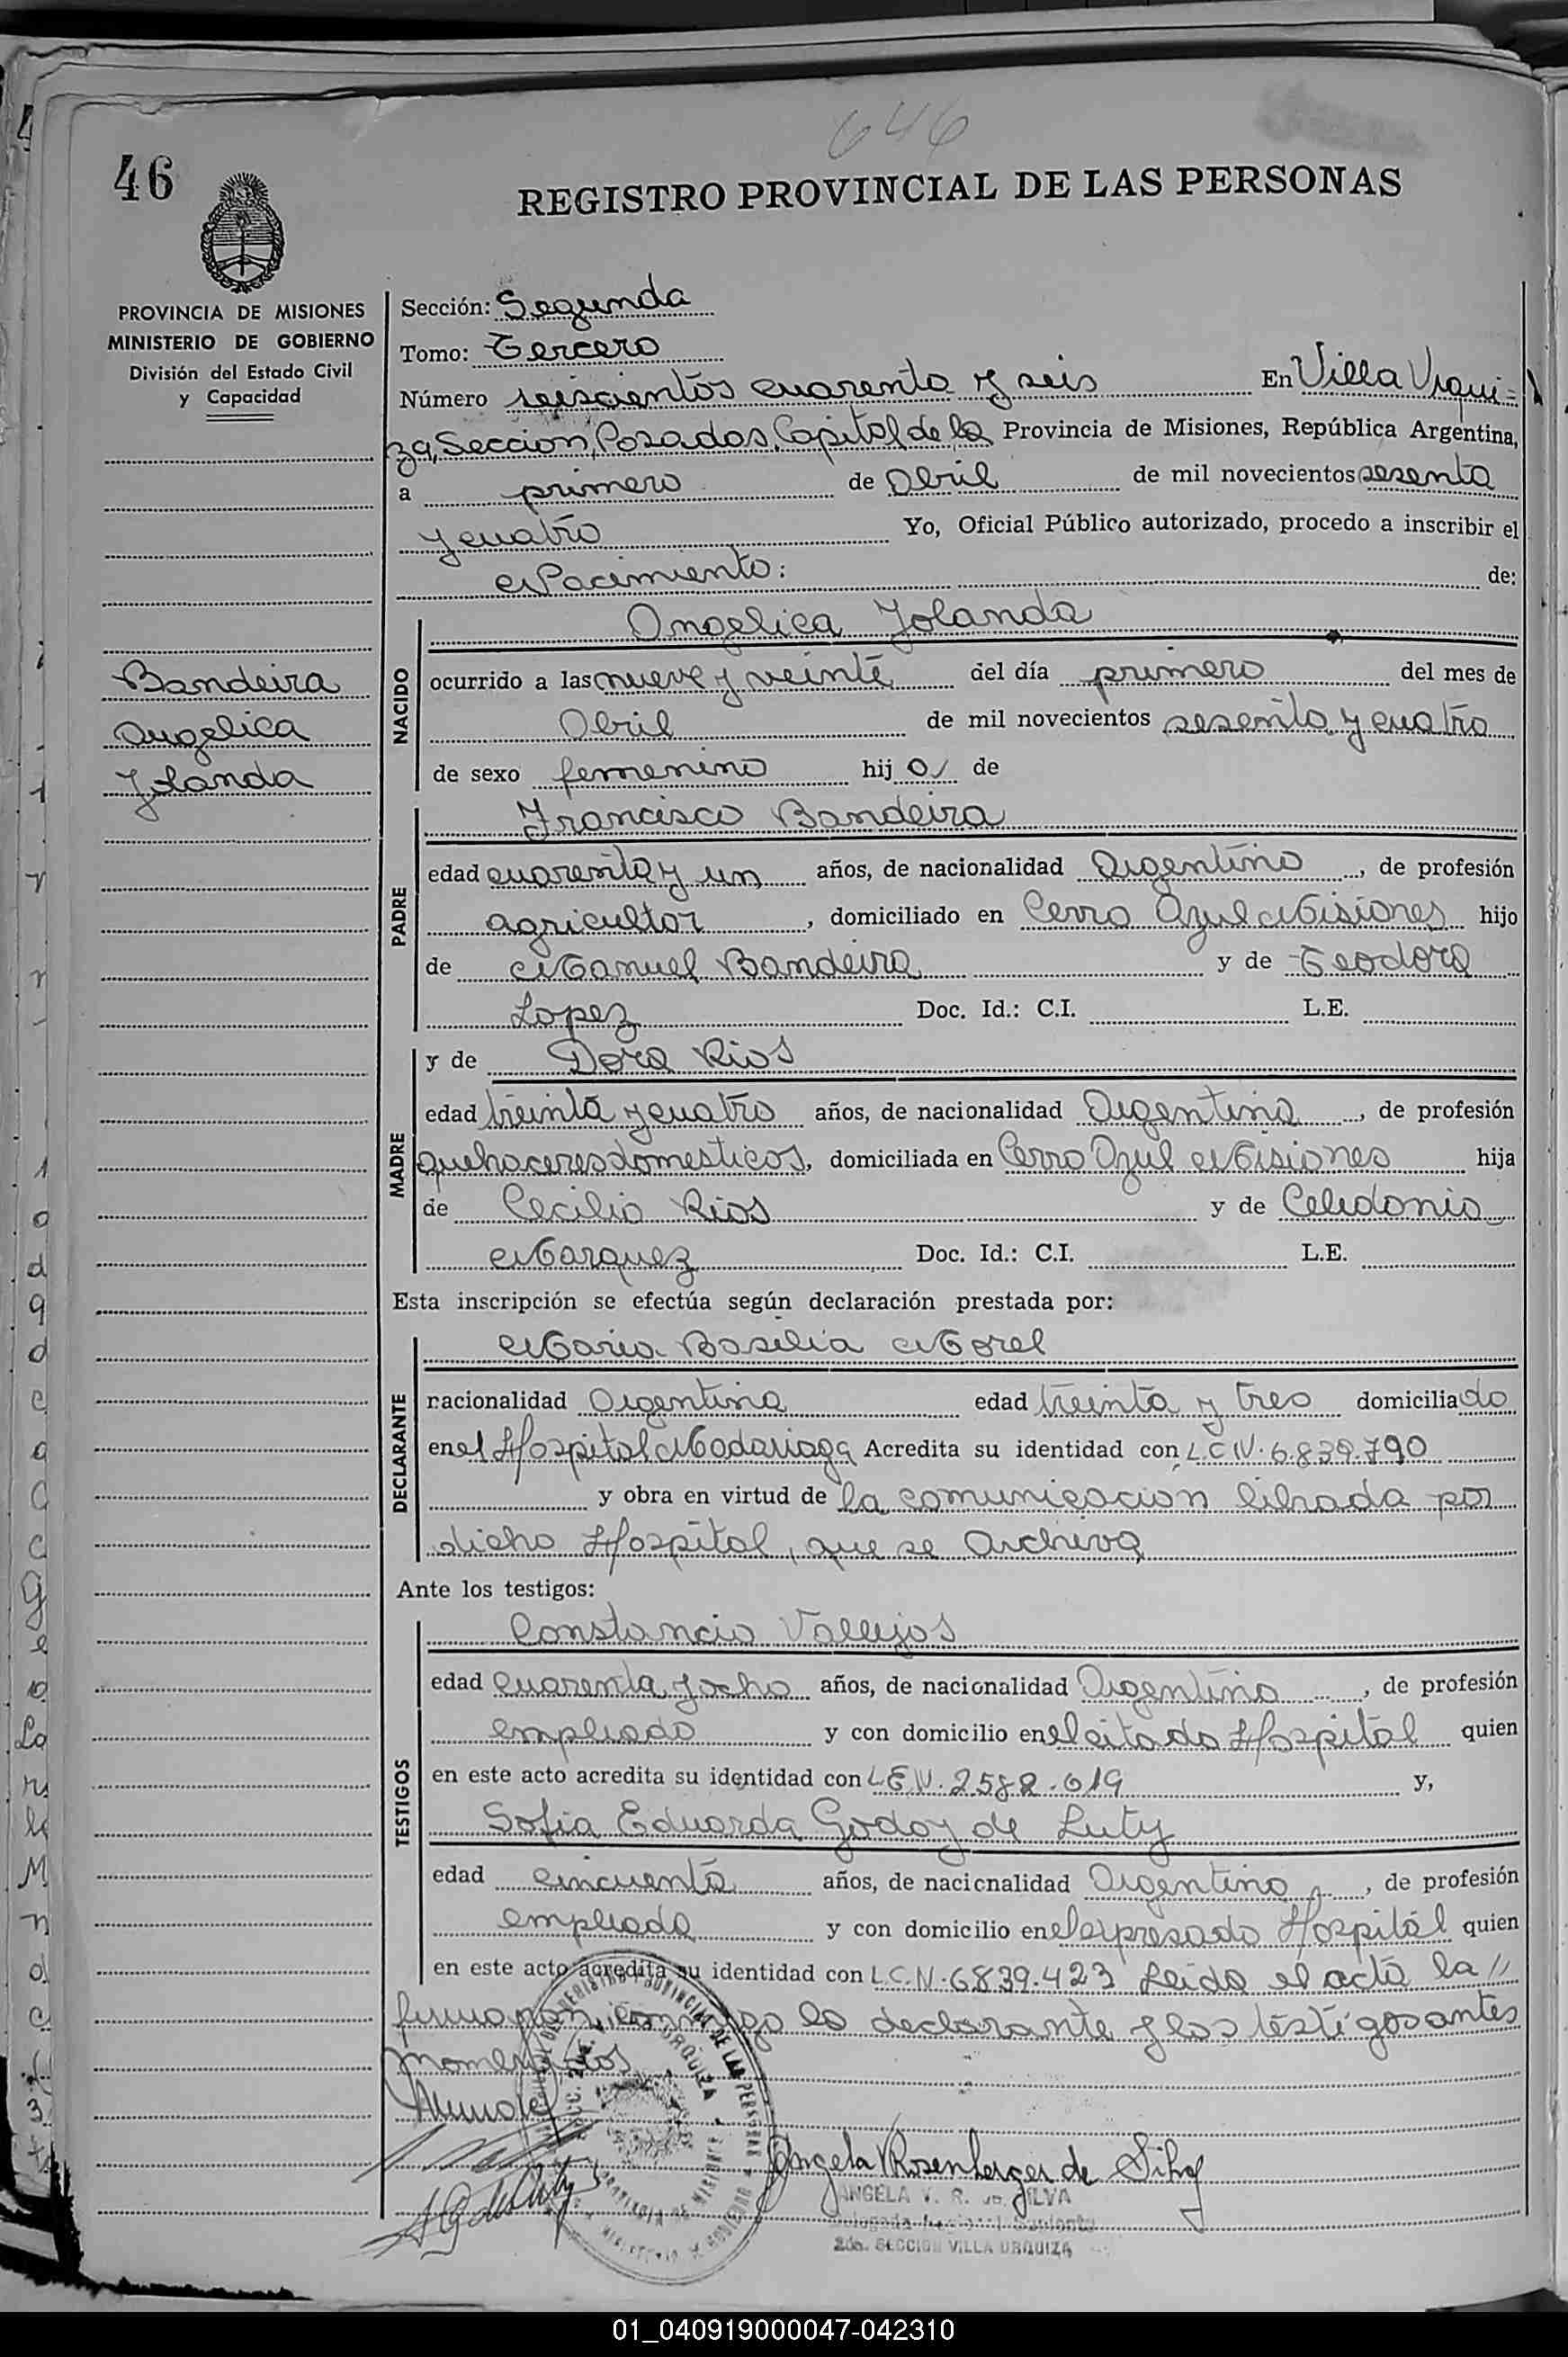 646
46
REGISTRO PROVINCIAL DE LAS PERSONAS
PROVINCIA DE MISIONES
MINISTERIO DE GOBIERNO
División del Estado Civil
y Capacidad
Bandeira
Angelica
Yolanda
Sección: Segunda
Tomo: Tercero
Número seiscientos cuarenta y seis En Villa Urqui=
za, Seccion, Posadas, Capital de la Provincia de Misiones, República Argentina,
a primero de Abril de mil novecientos sesenta
y cuatro Yo, Oficial Público autorizado, procedo a inscribir el
Nacimiento: de:
Angelica Yolanda
NACIDO
ocurrido a las nueve y veinte del día primero del mes de
Abril de mil novecientos sesenta y cuatro
de sexo femenino hij a de
PADRE
Francisco Bandeira
edad cuarenta y un años, de nacionalidad Argentina, de profesión
agricultor, domiciliado en Cerro Azul Misiones hijo
de Manuel Bandeira y de Teodora
Lopez Doc. Id.: C.I. L.E.
MADRE
y de Dora Rios
edad treinta y cuatro años, de nacionalidad Argentina, de profesión
quehaceres domesticos, domiciliada en Cerro Azul Misiones hija
de Cecilio Rios y de Celedonia
Marquez Doc. Id.: C.I. L.E.
Esta inscripción se efectúa según declaración prestada por:
DECLARANTE
Maria Basilia Morel
nacionalidad Argentina edad treinta y tres domiciliado
en el Hospital Madariaga Acredita su identidad con L.C.N. 6.839.790
y obra en virtud de la comunicacion librada por
dicho Hospital, que se Archiva
Ante los testigos:
TESTIGOS
Constancio Vallejos
edad cuarenta y ocho años, de nacionalidad Argentina, de profesión
empleado y con domicilio en el citado Hospital quien
en este acto acredita su identidad con L.E.N. 2.582.619 y,
Sofia Eduarda Godoy de Luty
edad cincuenta años, de nacionalidad Argentina, de profesión
empleada y con domicilio en el expresado Hospital quien
en este acto acredita su identidad con L.C.N. 6.839.423 Leida el acta la //
firmaran conmigo la declarante y los testigos antes
momenados
Angela V Rosenberger de Silva
ANGELA V. R. de SILVA
2da. SECCION VILLA URQUIZA
01_040919000047-042310